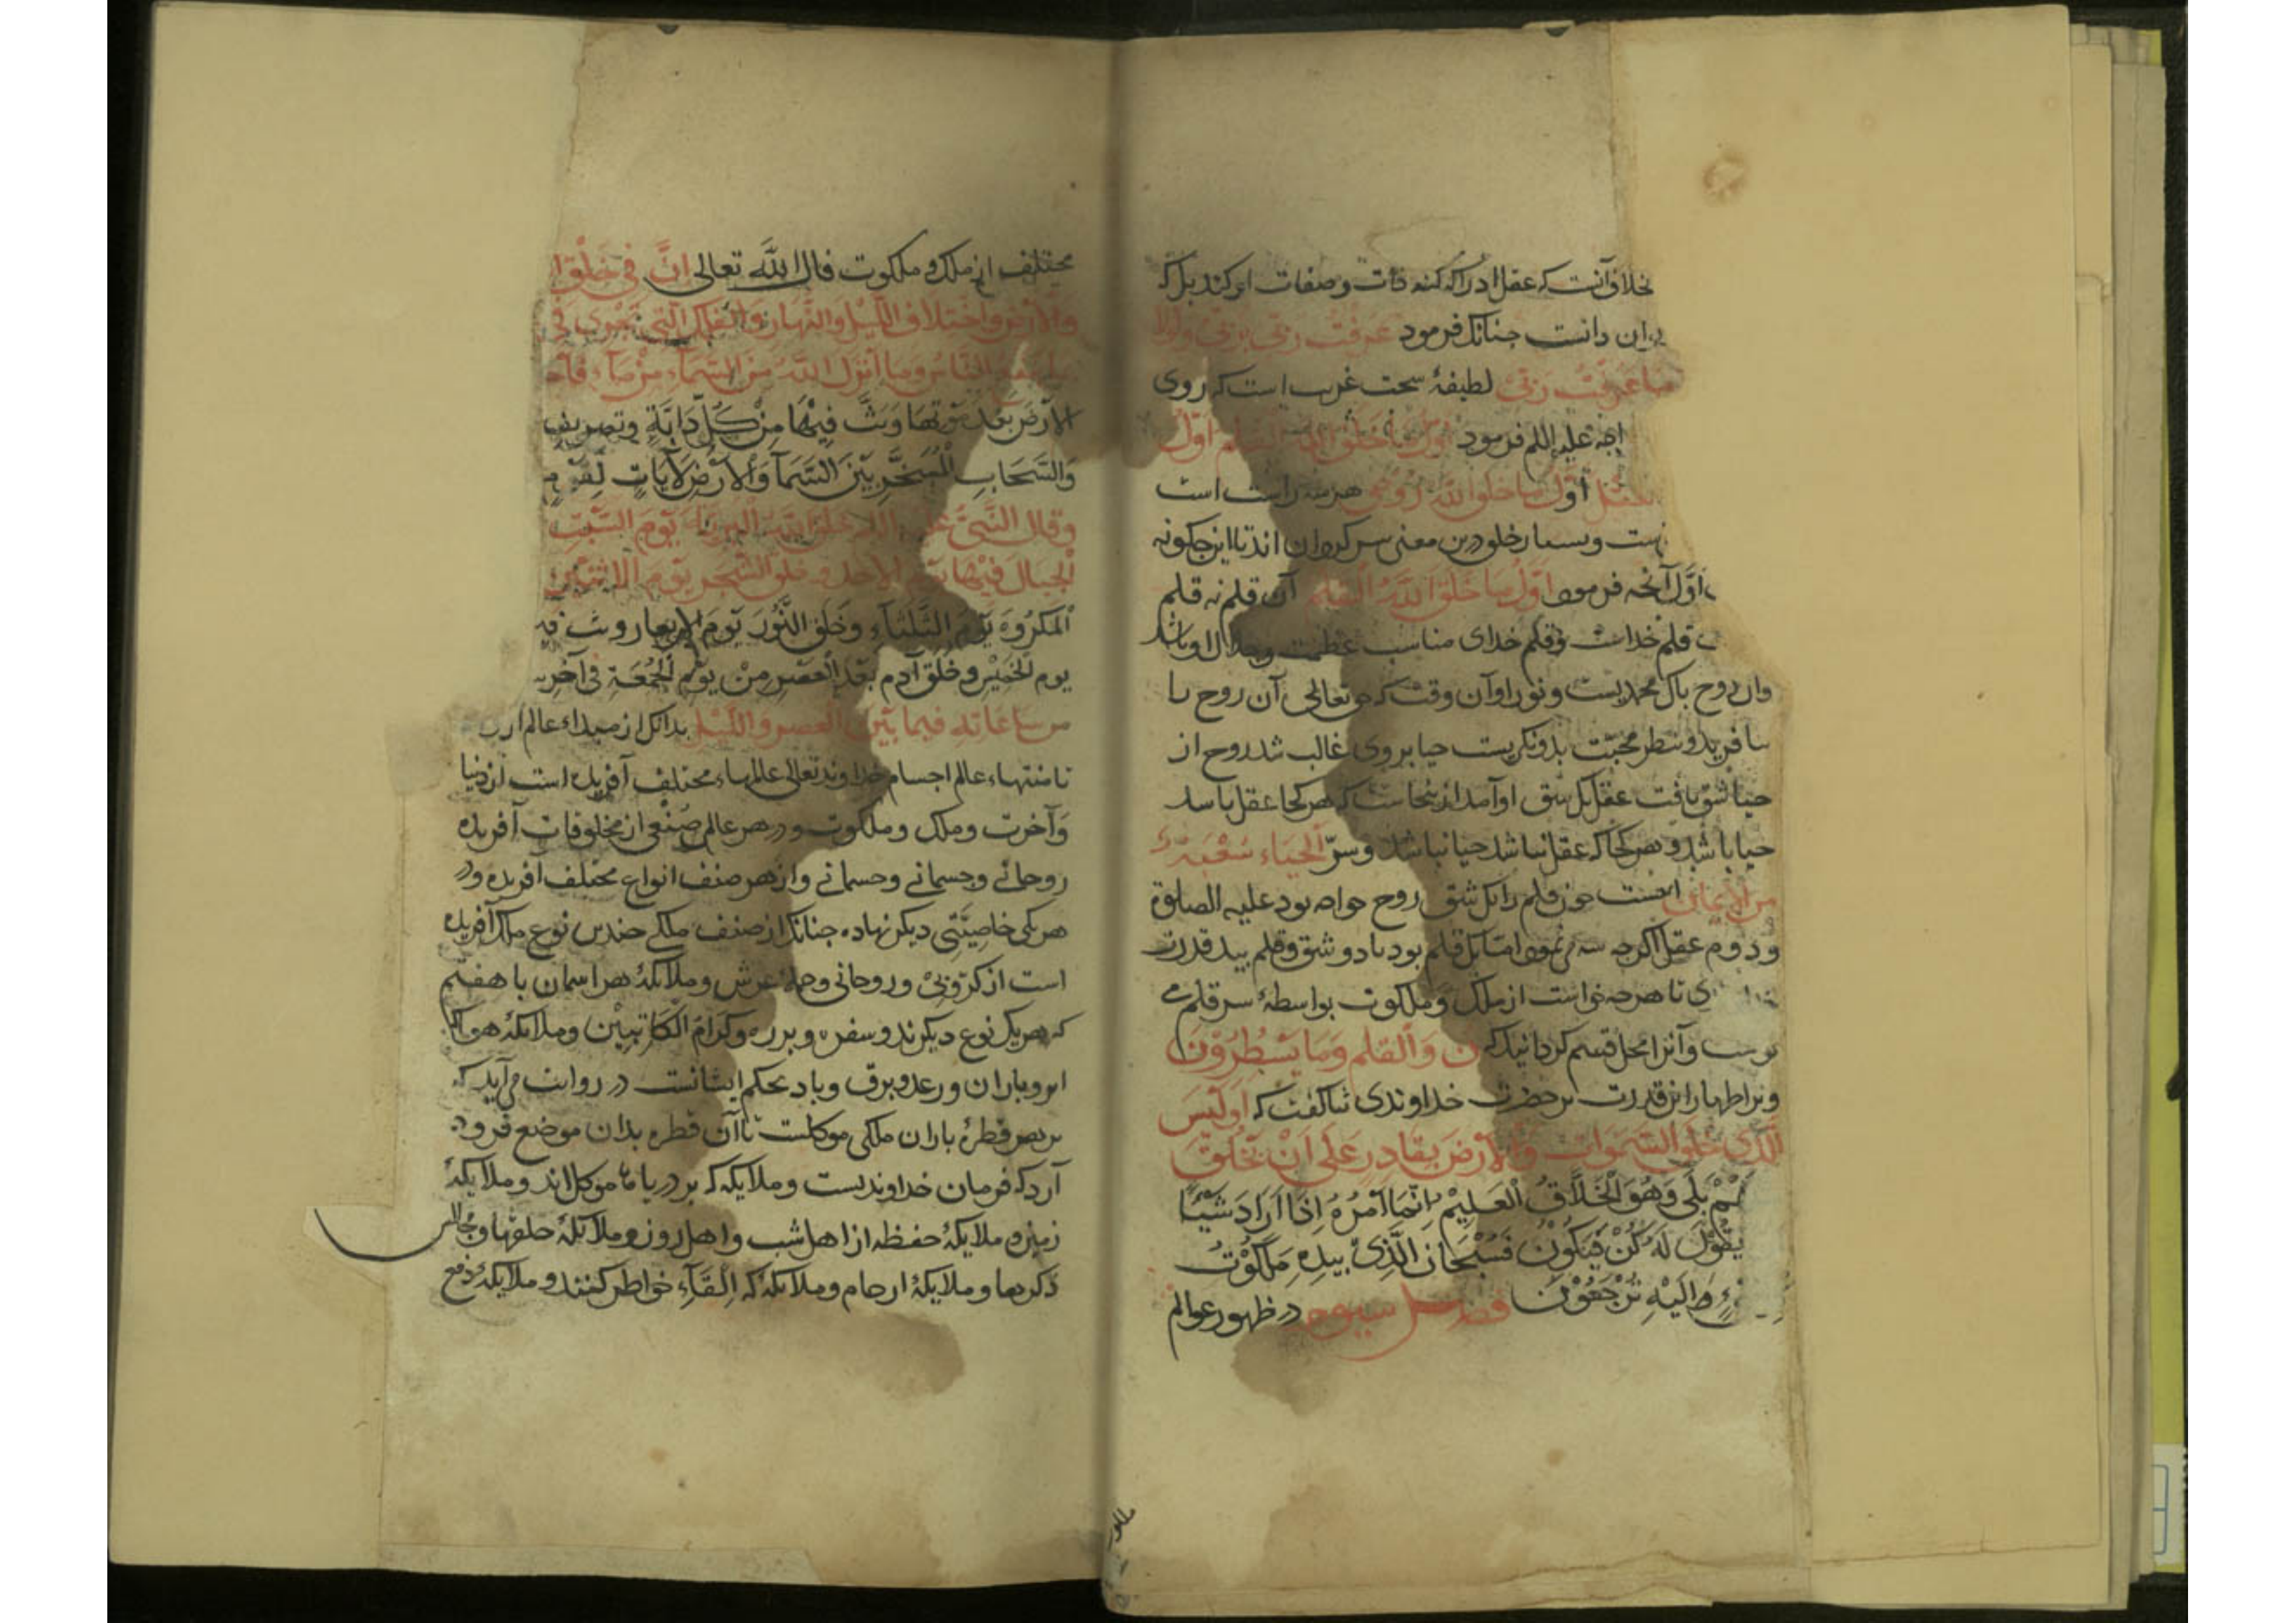 خلاف آنست که عقل ادراک کنه ذات وصفات او کند بل که
بدان دانست جنانک فرمود عرفت ربی بربی ولولا
ما عرفت ربی لطیفهٔ سخت غریب است که روی
علیه السلم فرمود اول ما خلق الله القلم اول
العقل اول ما خلق الله روحی هر سه راست است
نیست وبسیار خلق درین معنی سرکردان اند تا این جکونه
اول آنجه فرمود اول ما خلق الله القلم آن قلم نه قلم
قلم خداست وقلم خدای مناسب عظمت وجلال او باشد
وان روح باک محمدیست ونور او آن وقت که حق تعالی آن روح را
بیافرید ونظر محبت بدو نکریست حیا بر وی غالب شد روح از
حیا شق یافت عقل یک شق او آمد از ینجاست که هر کجا عقل باشد
حیا باشد وهر کجا که عقل نباشد حیا نباشد وسرّ الحیاء شعبة
من الایمان اینست جون قلم را یک شق روح خواجه بود علیه الصلوة
ودوم عقل اکرجه سه می نمود اما یک قلم بود با دو شق وقلم بید قدرت
تا هرجه خواست از ملک وملکوت بواسطهٔ سر قلم می
نوشت وآنرا محل قسم کردانید که ن والقلم وما یسطرون
وبر اظهار این قدرت بر حضرت خداوندی ثنا کفت که اولیس
الذی خلق السموات والارض بقادر علی ان یخلق
مثلهم بلی وهو الخلاق العلیم انما امره اذا اراد شیئا
یقول له کن فیکون فسبحان الذی بیده ملکوت
شیء والیه ترجعون فصل سیوم در ظهور عوالم
مختلف از ملک وملکوت قال الله تعالی ان فی خلق ا
والارض واختلاف اللیل والنهار والفلک التی تجری فی
بما ینفع الناس وما انزل الله من السماء من ماء فاحیا
الارض بعد موتها وبث فیها من کل دابة وتصریف
والسحاب المسخر بین السماء والارض لآیات لقوم
وقال النبی علیه السلم خلق الله التربة یوم السبت
الجبال فیها یوم الاحد وخلق الشجر یوم الاثنین
المکروه یوم الثلثاء وخلق النور یوم الاربعا وبث فیه
یوم الخمیس وخلق آدم بعد العصر من یوم الجمعة فی آخر
من ساعاته فیما بین العصر واللیل بدانک از مبداء عالم ارو
تا منتهاء عالم اجسام خداوند تعالی عالمهاء مختلف آفریده است از دنیا
وآخرت وملک وملکوت ودر هر عالم صنفی از مخلوقات آفریده
روحانی وجسمانی وجسمانی واز هر صنف انواع مختلف آفریده ودر
هر یکی خاصیتی دیکر نهاده جنانک از صنف ملکی جندین نوع ملک آفریده
است از کروبی وروحانی وحملهٔ عرش وملایکهٔ هر اسمان تا هفتم
که هر یک نوع دیکرند وسفره وبرره وکرام الکاتبین وملایکهٔ هوا که
ابر وباران ورعد وبرق وباد بحکم ایشانست در روایت می آید که
بر هر قطرهٔ باران ملکی موکلست تا آن قطره بدان موضع فرود
آرد که فرمان خداوندیست وملایکه که بر دریاها موکل اند وملایکهٔ
زمین وملایکهٔ حفظه از اهل شب واهل روز وملایکهٔ حلقها ومجالس
ذکرها وملایکهٔ ارحام وملایکهٔ که القاء خواطر کنند وملایکهٔ دفع